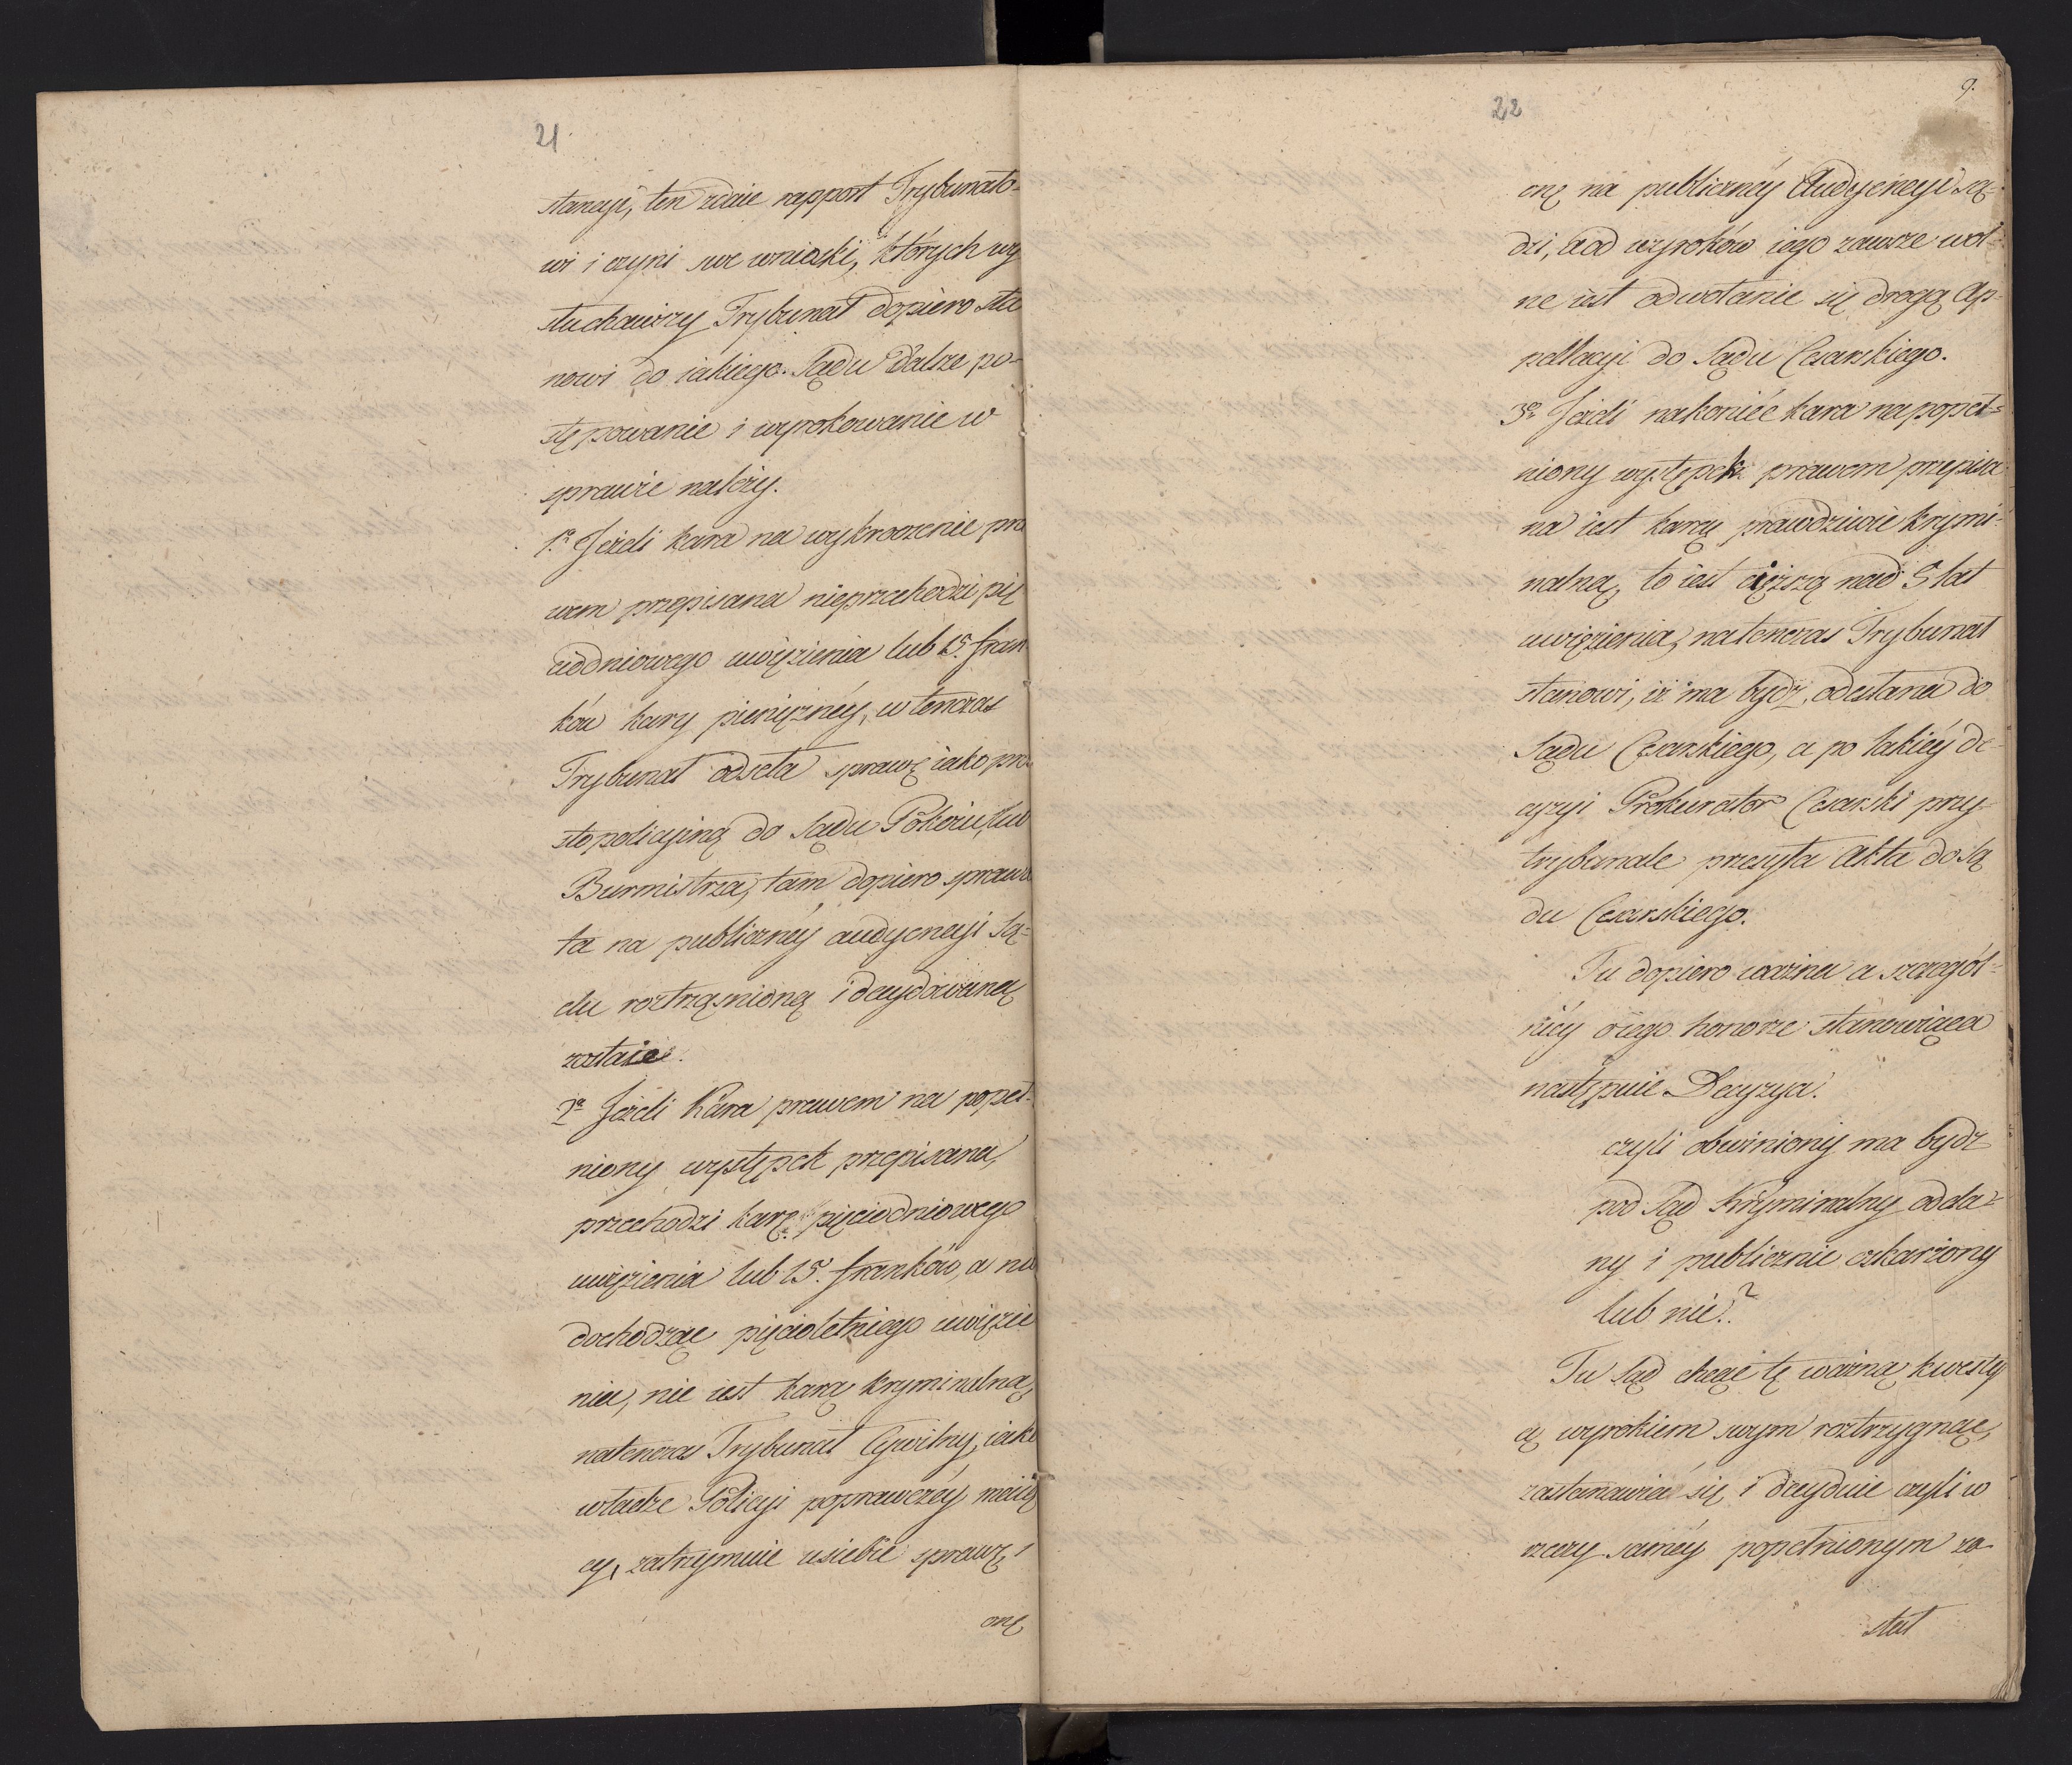 21.
stancyi, ten zdaie rapport Trybunało-
wi i czyni swe wnioski, których wy
słuchawszy Trybunał dopiero sta
nowi do iakiego Sądu dalsze po-
stępowanie i wyrokowanie w
sprawie należy.
1o Jeżeli kara na wykroczenie pra
wem przepisana nieprzechodzi pię
ciodniowego uwięzienia lub 15. fran
ków kary pieniężnéy, wtenczas
Trybunał odseła sprawę iako pro
sto policyiną do Sądu Pokoiu, lub
Burmistrza, tam dopiero sprawa
ta na publicznéy audyencyi Są-
du roztrząsnioną i decydowaną
zostaie.
2o Jeżeli Kara prawem na popeł-
niony występek przepisana,
przechodzi karę pięciodniowego
uwięzienia lub 15. franków, a nie
dochodząc pięcioletniego uwięzie
nia, nie iest karą kryminalną,
natenczas Trybunał Cywilny, iako
władze Policyi poprawczéy maią
cy, zatrzymuie usiebie sprawę i
onę
22
9.
onę na publicznéy Audyencyi są-
dzi, a od wyroków iego zawsze wol-
ne iest odwołanie się drogą Ap-
pellacyi do Sądu Cesarskiego.
3o Jeżeli nakoniec kara na popeł-
niony występek prawem przepisa
na iest karą prawdziwie krymi-
nalną, to iest cięższą nad 5 lat
uwięzienia, natenczas Trybunał
stanowi, iż ma bydź odesłana do
Sądu Cesarskiego, a po takiéy de-
cyzyi Prokurator Cesarski przy
trybunale przesyła Akta do Są
du Cesarskiego.
Tu dopiero ważna a szczegól-
niéy o iego honorze stanowiąca
następuie Decyzya.
czyli obwiniony ma bydź
pod Sąd Kryminalny odda-
ny i publicznie oskarżony
lub nie?
Tu Sąd chcąc tę ważną kwesty
ą wyrokiem swym roztrzygnąć,
zastanawia się i decyduie czyli w
rzeczy saméy popełnionym zo
stał